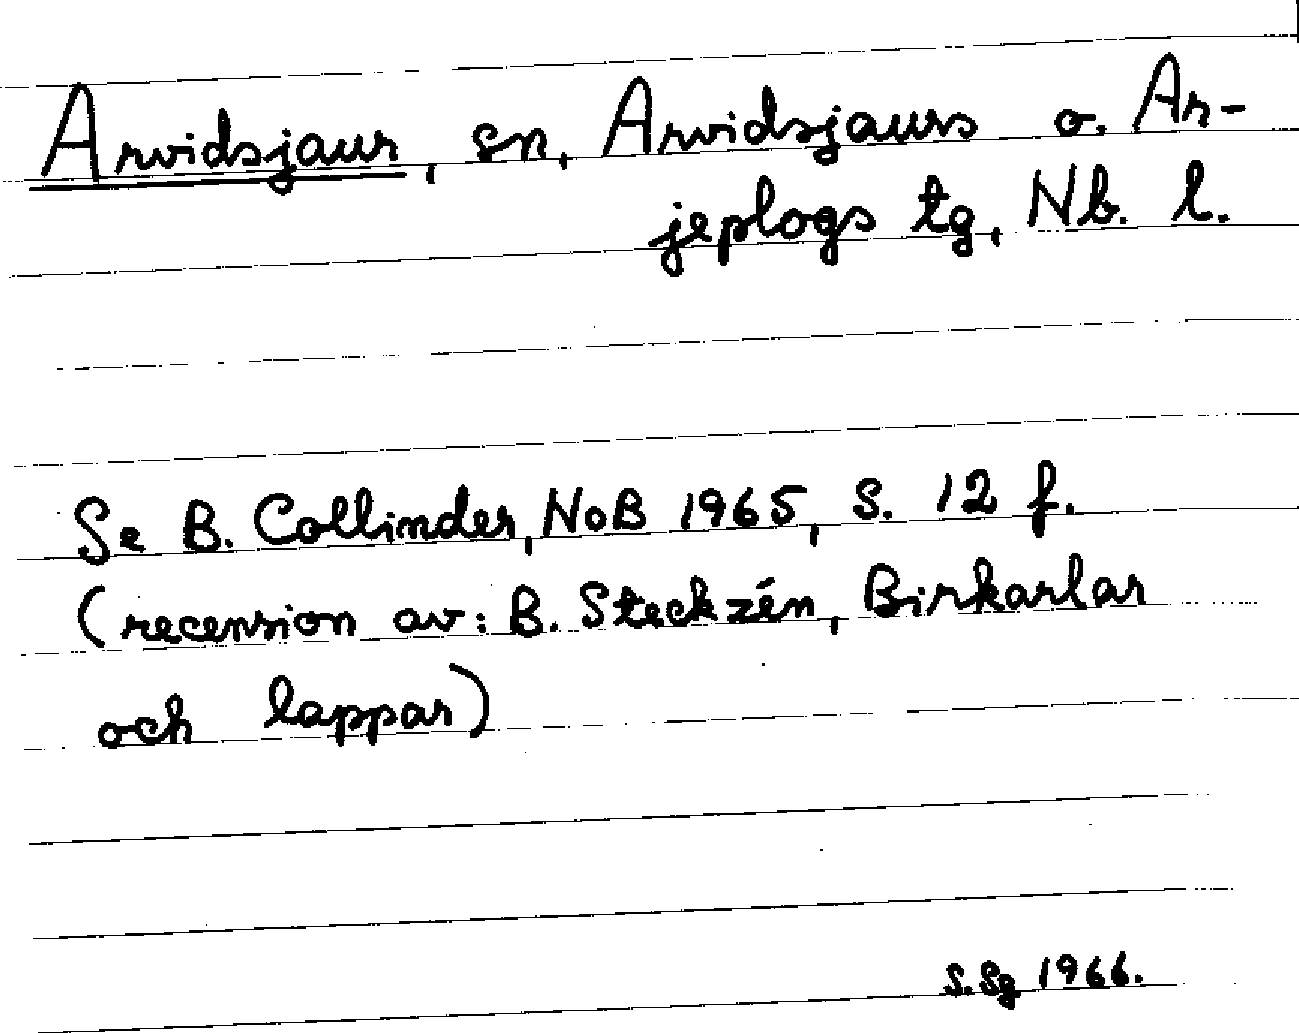 Arvidsjaur, sn, Arvidsjaurs o. Ar-
jeplogs tg, Nb. l.
Se B. Collinder, NoB 1965, s. 12 f.
(recension av: B. Steckzén, Birkarlar
och lappar)
S. Sg 1966.